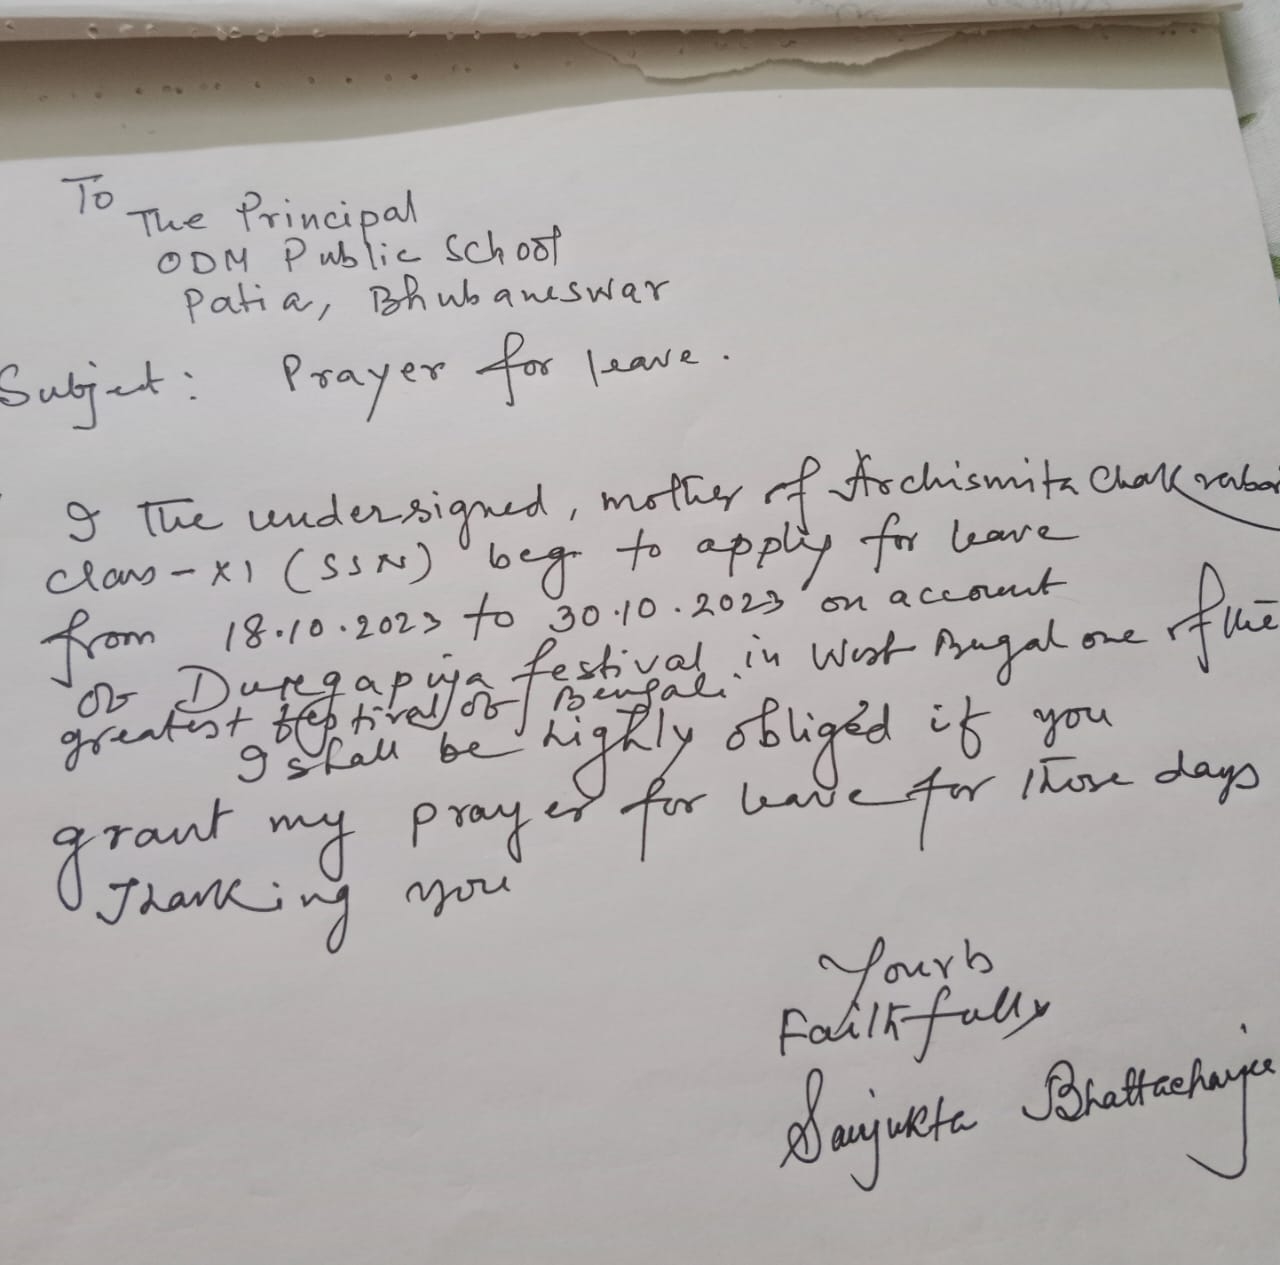 To
The Principal
ODM Public School
Patia, Bhubaneswar
Subject: Prayer for leave.
I the undersigned, mother of Archismita Chakrabar
class - XI (SSN) beg to apply for leave
from 18.10.2023 to 30.10.2023 on account
of Duregapuja festival in West Bengal one of the
greatest festival of Bengali.
I shall be highly obliged if you
grant my prayer for leave for those days
Thanking you
Yours
Faithfully
Sanjukta Bhattacharjee